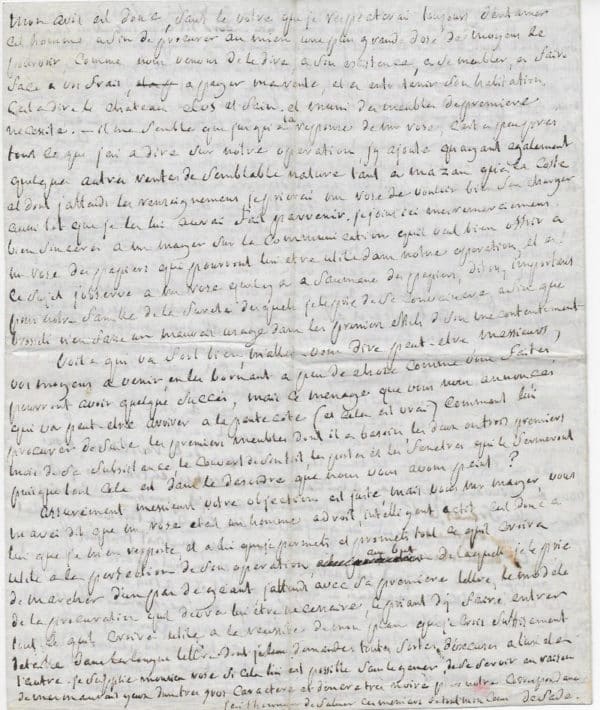 mon avis est donc, sauf le votre que je respecterai toujours d'entamer
cet homme, afin de procurer au mien une plus grande dose de moyens de
pouvoir comme nous venons de le dire, a son existence, a se meubler, a faire
face a vos frais, a payer ma rente, et a entretenir son habitation
c'est a dire le chateau clos et sain, et muni des meubles de premiere
necessité. — il me semble que jusqu'a la response de mr rose, c'est a peu pres
tout ce que j'ai a dire sur notre operation, j'y ajoute qu'ayant egalement
quelque autres ventes de semblable nature tant a mazan qu'a la coste
et dont j'attends les renseignemens, je prierai mr rose de vouloir bien s'en charger
aussitot que je les lui aurai fait parvenir. je joins ici mes remerciemens
bien sinceres a mr mayer sur la communication qu'il veut bien offrir a
mr rose des papiers qui pourront lui etre utile dans notre operation, et a
ce sujet j'observe a mr rose qu'il y a a saumane des papiers, dit on, importans
pour notre famille de la sureté desquels je le prie de se convaincre afin que
n'en fasse un mauvais usage dans les premiers de son mecontentement
Voila qui va fort bien, m'allez vous dire peut-etre messieurs,
vos moyens a venir, en les bornant a peu de chose comme vous faites,
pourront avoir quelque succès, mais ce menage que vous nous annoncés
qui va peut-etre arriver a la pentecote (et cela est vrai) comment lui
procurer de suite, les premiers meubles dont il a besoin les deux ou trois premiers
mois de sa subsistance le couvert de son toit les portes et les fenetres qui le fermeront
puisque tout cela est dans le desordre que nous vous avons peint?
assurement messieurs votre objection est juste mais vous mr mayer vous
m'avez dit que mr rose etait un homme adroit, intelligent actif c'est donc a
lui que je m'en rapporte, et a lui que je permets et promets tout ce qu'il croira
utile a la perfection de son operation, au but de laquelle je le prie
de marcher d'un pas de géant j'attends avec sa premiere lettre, le modele
de la procuration qui devra lui être necessaire, le priant d'y faire entrer
tout ce qu'il croira utile a la reussite de mon plan que je crois suffisament
detaillé dans cette longue lettre dont je leur demande toutes sortes d'excuses a l'un et a
l'autre. je supplie monsieur rose si cela lui est possible sans le gener, de se servir en raison
de mes mauvais yeux d'un très gros caractere et d'une encre noire pour notre correspondance
j'ai l'honneur de saluer ces messieurs de tout mon cœur de Sade.